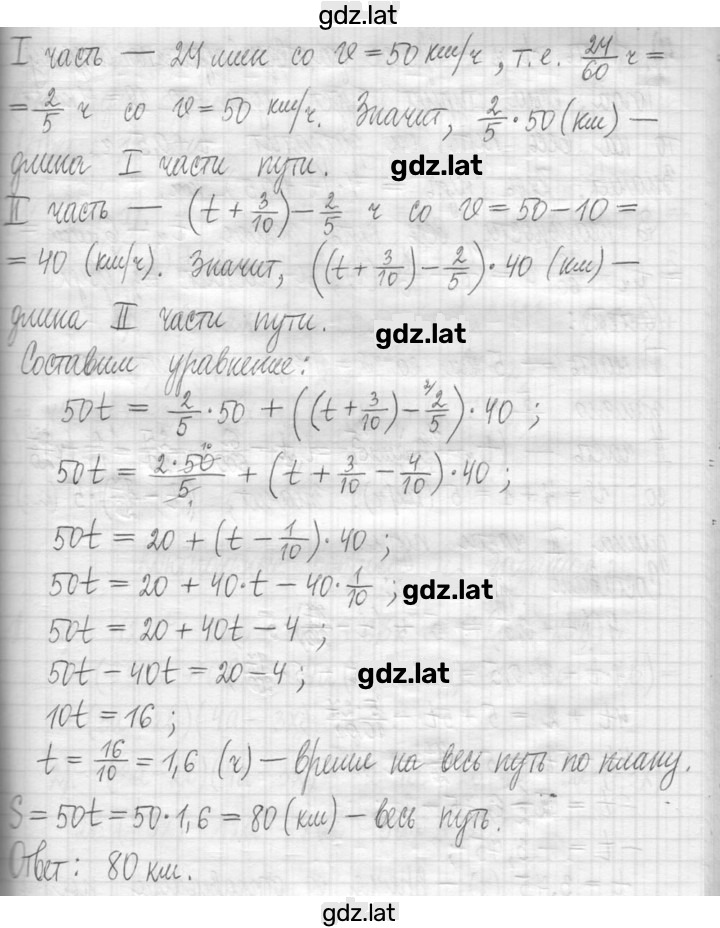 gdz.lat
I часть — 24 мин со v = 50 км/ч, т.е. 24/60 ч =
= 2/5 ч со v = 50 км/ч. Значит, 2/5 · 50 (км) —
длина I части пути. gdz.lat
II часть — (t + 3/10) − 2/5 ч со v = 50 − 10 =
= 40 (км/ч). Значит, ((t + 3/10) − 2/5) · 40 (км) —
длина II части пути. gdz.lat
Составим уравнение:
50t = 2/5 · 50 + ((t + 3/10) − 2/5) · 40 ;
50t = 2·50/5 + (t + 3/10 − 4/10) · 40 ;
50t = 20 + (t − 1/10) · 40 ;
50t = 20 + 40·t − 40 · 1/10 ; gdz.lat
50t = 20 + 40t − 4 ;
50t − 40t = 20 − 4 ; gdz.lat
10t = 16 ;
t = 16/10 = 1,6 (ч) — время на весь путь по плану.
S = 50t = 50 · 1,6 = 80 (км) — весь путь.
Ответ: 80 км.
gdz.lat